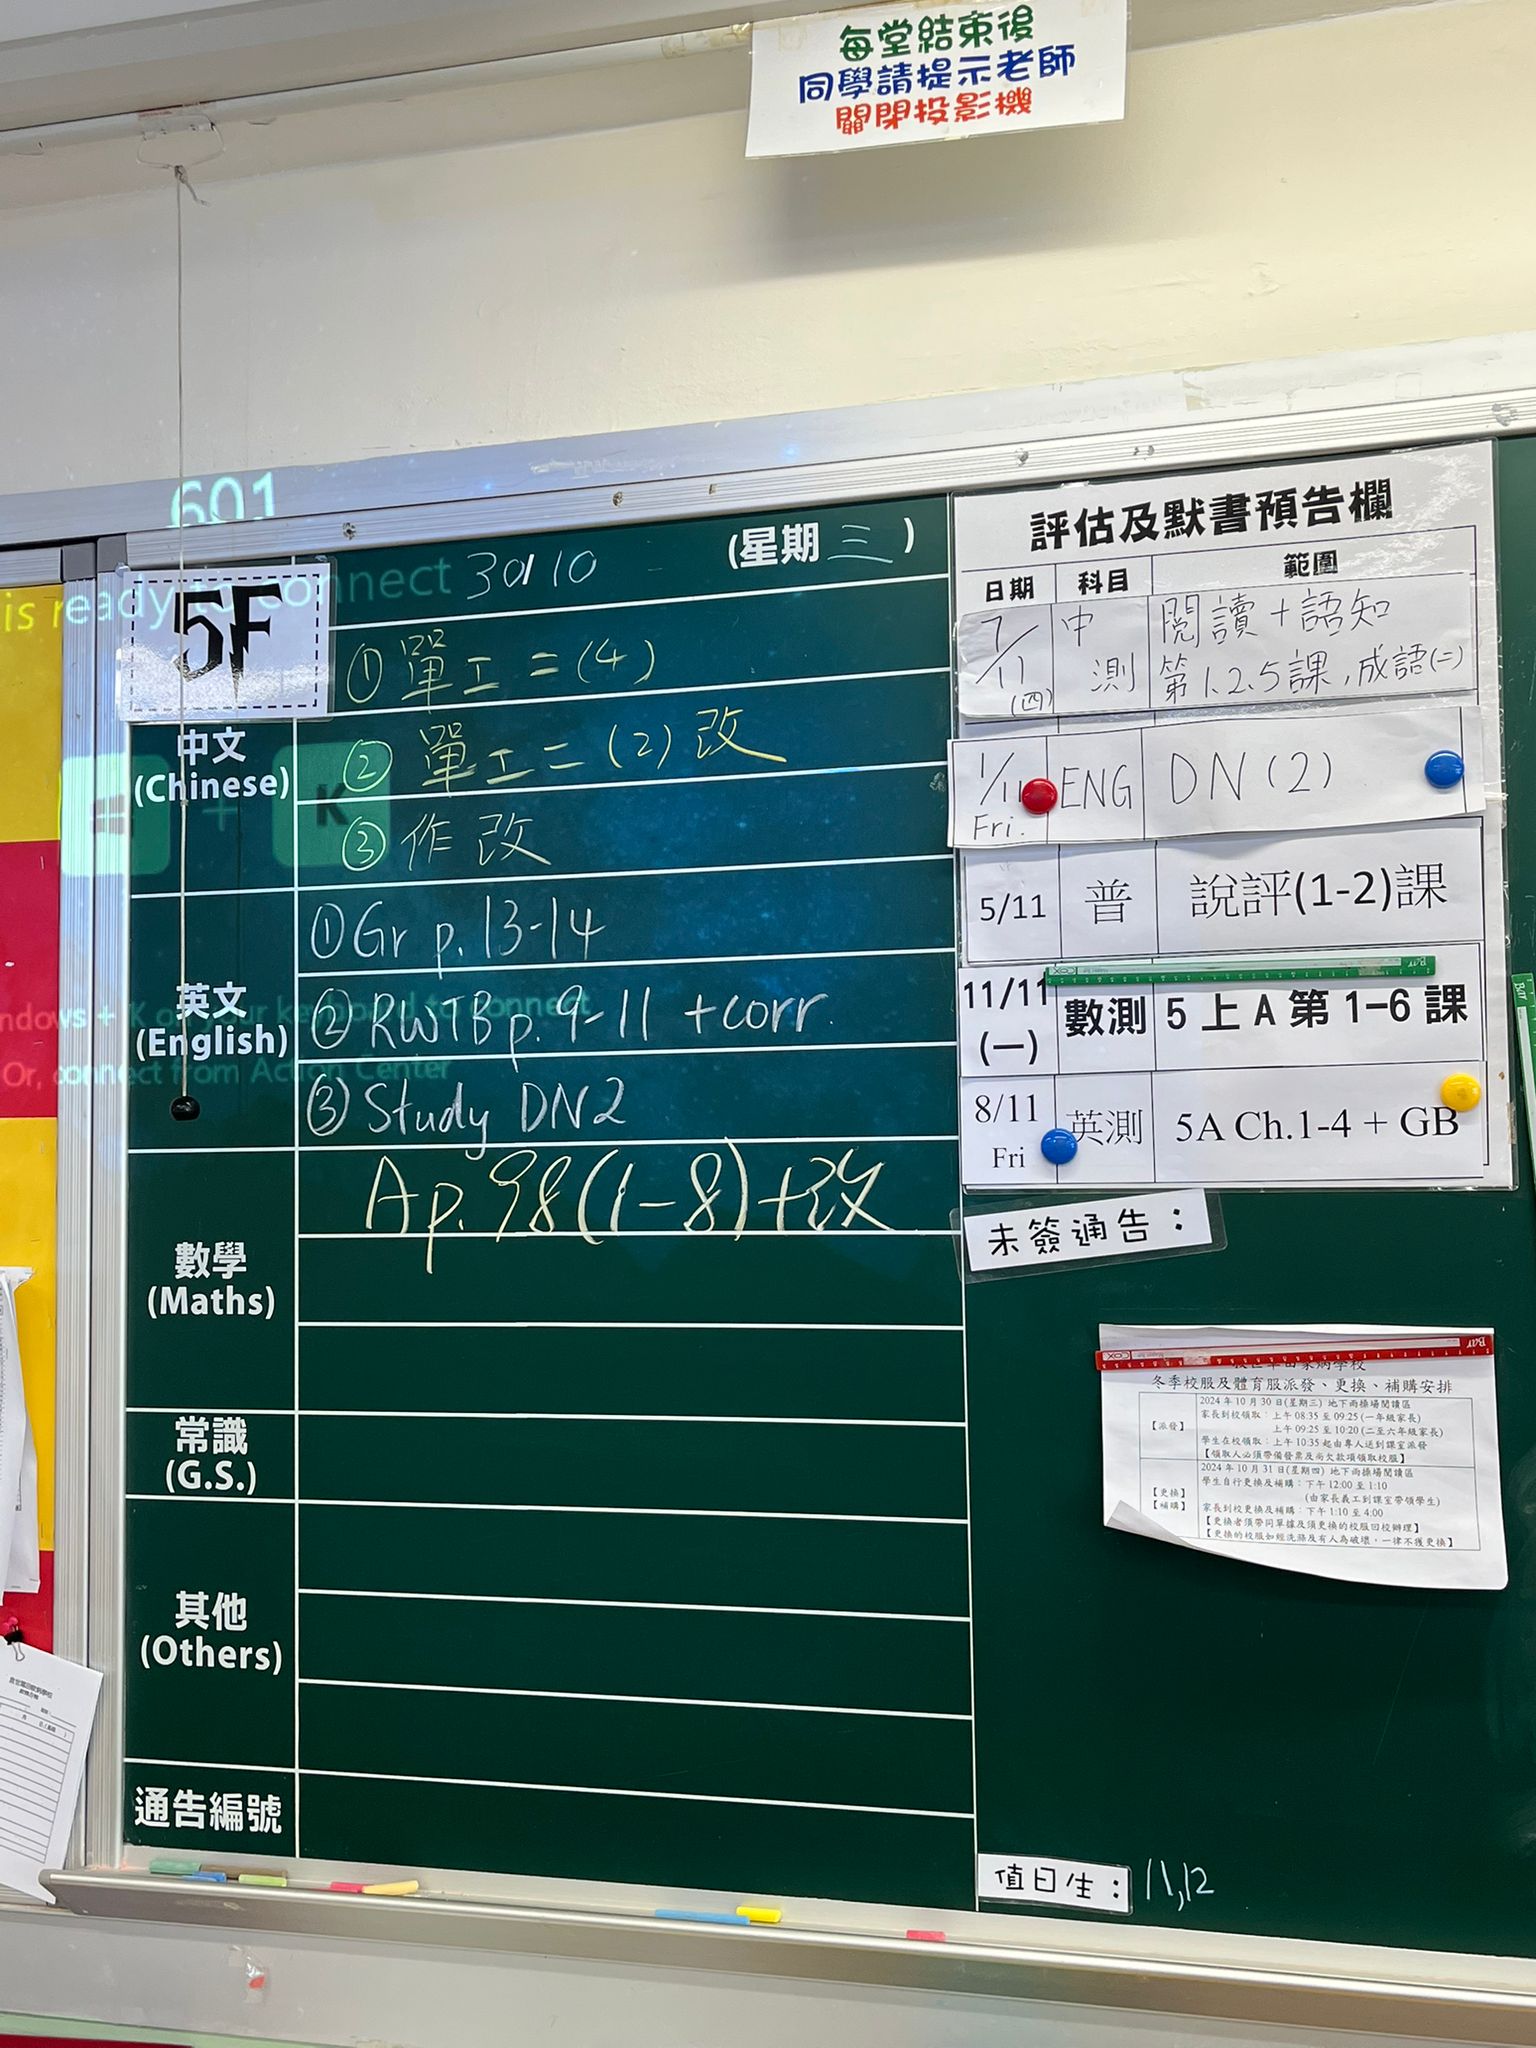 每堂結束後
同學請提示老師
關閉投影機
601
is ready to connect
5F
30/10
(星期三)
中文
(Chinese)
① 單工二(4)
② 單工二(2)改
③ 作改
+ K
英文
(English)
① Gr p. 13-14
② RWTB p. 9-11 + corr.
③ Study DN2
ndows + K on your keyboard to connect
Or, connect from Action Center
數學
(Maths)
A p. 98 (1-8) + 改
常識
(G.S.)
其他
(Others)
通告編號
評估及默書預告欄
日期 科目 範圍
7/11 (四) 中測 閱讀+語知 第1.2.5課,成語(二)
1/11 Fri. ENG DN(2)
5/11 普 說評(1-2)課
11/11 (一) 數測 5上A第1-6課
8/11 Fri 英測 5A Ch.1-4 + GB
未簽通告:
冬季校服及體育服派發、更換、補購安排
【派發】
2024年10月30日(星期三) 地下雨操場閱讀區
家長到校領取:上午08:35至09:25(一年級家長)
上午09:25至10:20(二至六年級家長)
學生在校領取:上午10:35起由專人送到課室派發
【領取人必須帶備發票及尚欠款項領取校服】
【更換】
【補購】
2024年10月31日(星期四) 地下雨操場閱讀區
學生自行更換及補購:下午12:00至1:10
(由家長義工到課室帶領學生)
家長到校更換及補購:下午1:10至4:00
【更換者須帶同單據及須更換的校服回校辦理】
【更換的校服如經洗滌及有人為破壞,一律不獲更換】
值日生: 11,12